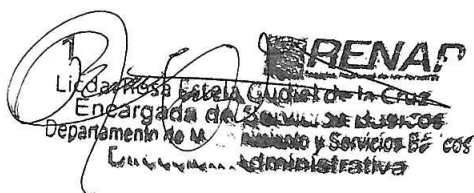 RENAP
Licda. Rosa Estela Gudiel de la Cruz
Encargada de Servicios Básicos
Departamento de y Servicios Básicos
Administrativa